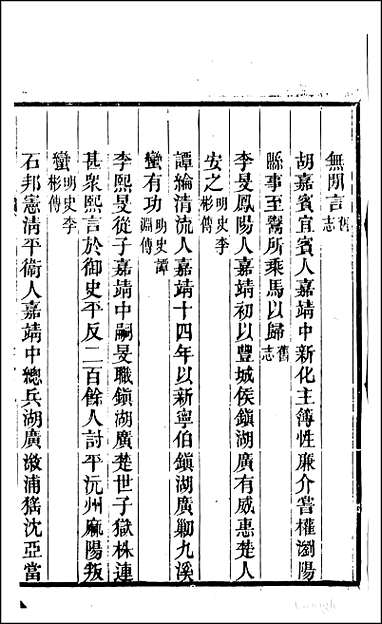 無閒言舊志
胡嘉賓宜賓人嘉靖中新化主簿性廉介嘗權瀏陽
縣事至鬻所乘馬以歸舊志
李旻鳳陽人嘉靖初以豐城侯鎮湖廣有威惠楚人
安之明史李彬傳
譚綸清流人嘉靖十四年以新寧伯鎮湖廣勦九溪
蠻有功明史譚淵傳
李熙旻從子嘉靖中嗣旻職鎮湖廣楚世子獄株連
甚衆熙言於御史平反二百餘人討平沅州麻陽叛
蠻明史李彬傳
石邦憲清平衞人嘉靖中總兵湖廣漵浦猺沈亞當